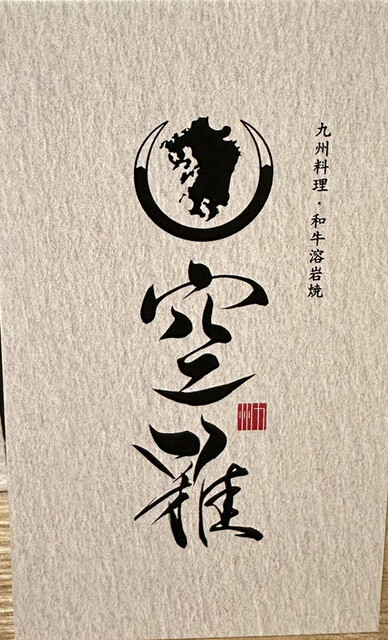 九州料理・和牛溶岩焼
空雅
九州